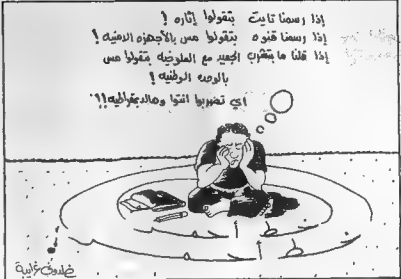 إذا رسمنا تايت بتقولوا إثاره !
إذا رسمنا قنوه بتقولوا مس بالأجهزه الامنيه !
إذا قلنا ما بتشرب الجميد مع الملوخيه بتقولوا مس
بالوحده الوطنيه !
اي تضربوا انتوا وهالديمقراطيه !!
خط أحمر
خط أحمر
خلدون غرايبة